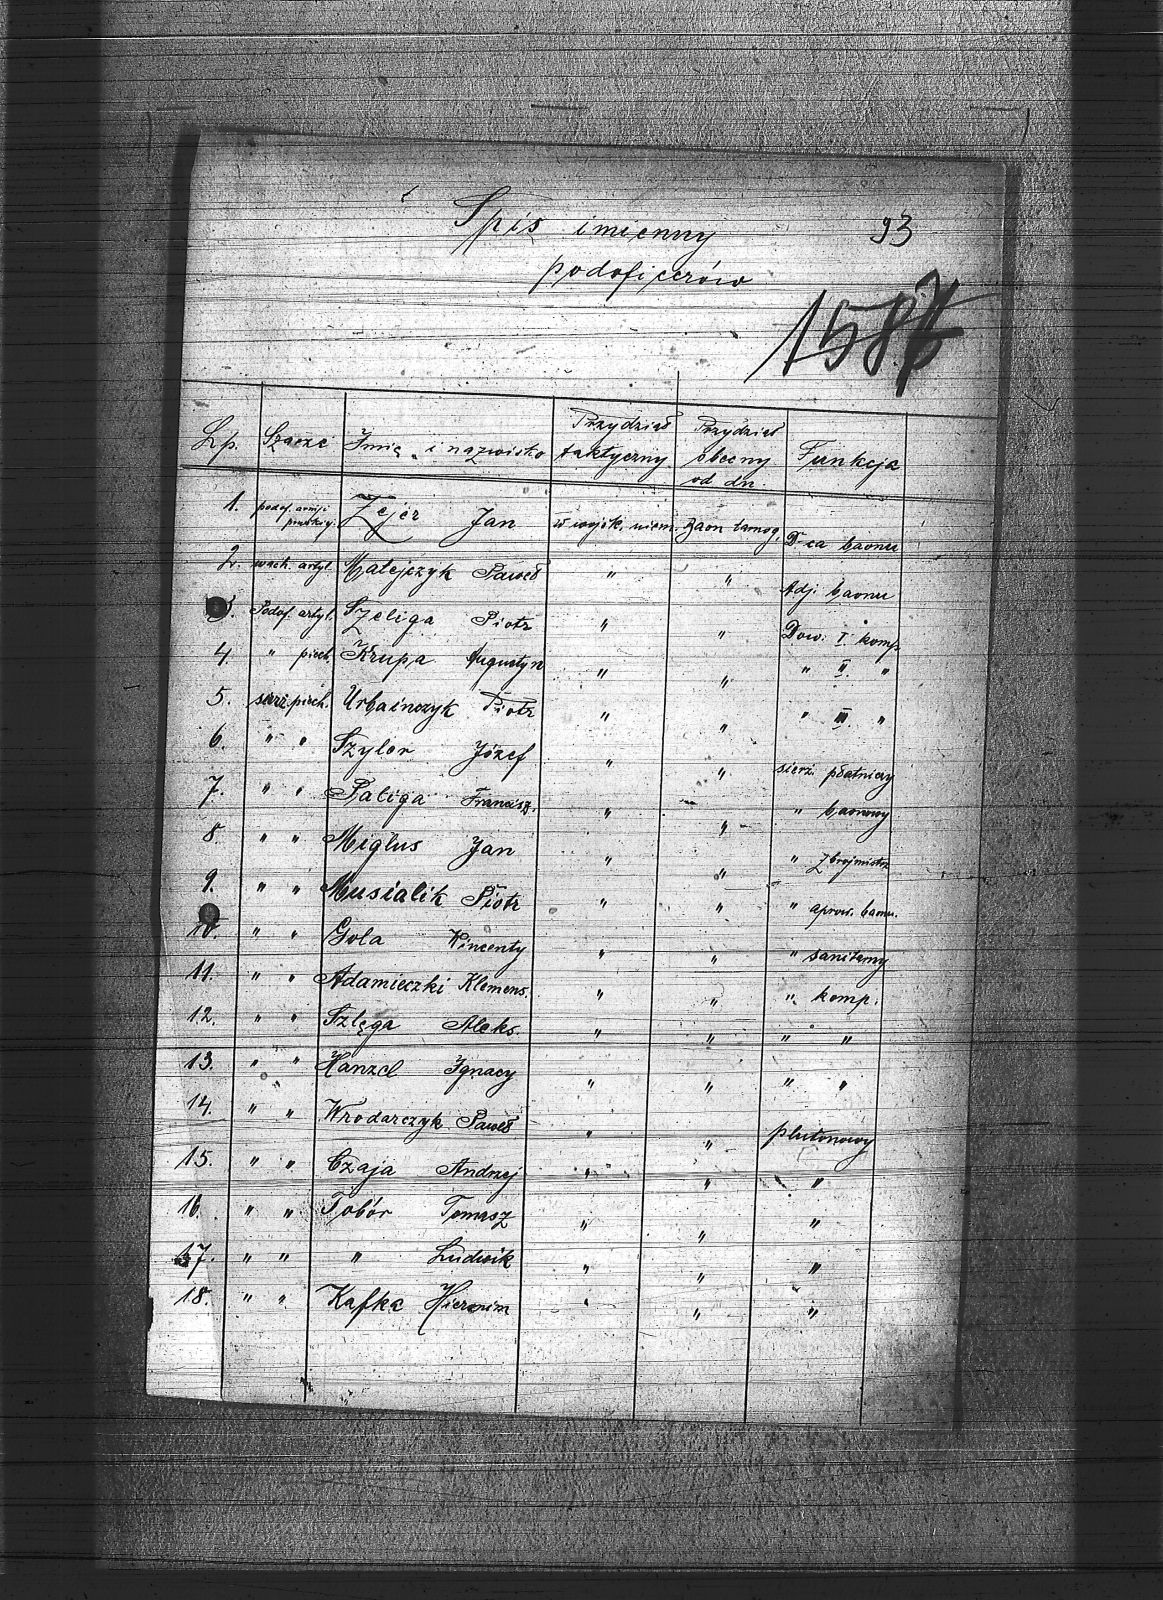 Spis imienny
93
podoficerów
158
Lp. Szarże Imię i nazwisko Przydział taktyczny Przydział obecny od dn. Funkcja
1. podof. armji Zejer Jan w wojsk. niem. D-ca baonu
2. wach. artyl. Matejczyk Paweł " " Adj. baonu
3. Podof. artyl. Szeliga Piotr " " Dow. I. komp.
4. " piech. Krupa Augustyn " " " II. "
5. sierż. piech. Urbainczyk Piotr " " " III. "
6. " " Szyler Józef " " sierż. płatniczy
7. " " Paliga Francisz. " " " baonowy
8. " " Miglus Jan " " " zbrojmistrz
9. " " Musialik Piotr " " " aprow. baonu.
10. " " Gola Wincenty " " " sanitarny
11. " " Adamieczki Klemens. " " " komp.
12. " " Szlęga Aleks. " " " "
13. " " Hanzel Ignacy " " " "
14. " " Wrodarczyk Paweł " " plutonowy
15. " " Czaja Andrzej " " "
16. " " Tobór Tomasz " " "
17. " " " Ludwik " " "
18. " " Kafka Hieronim " " "